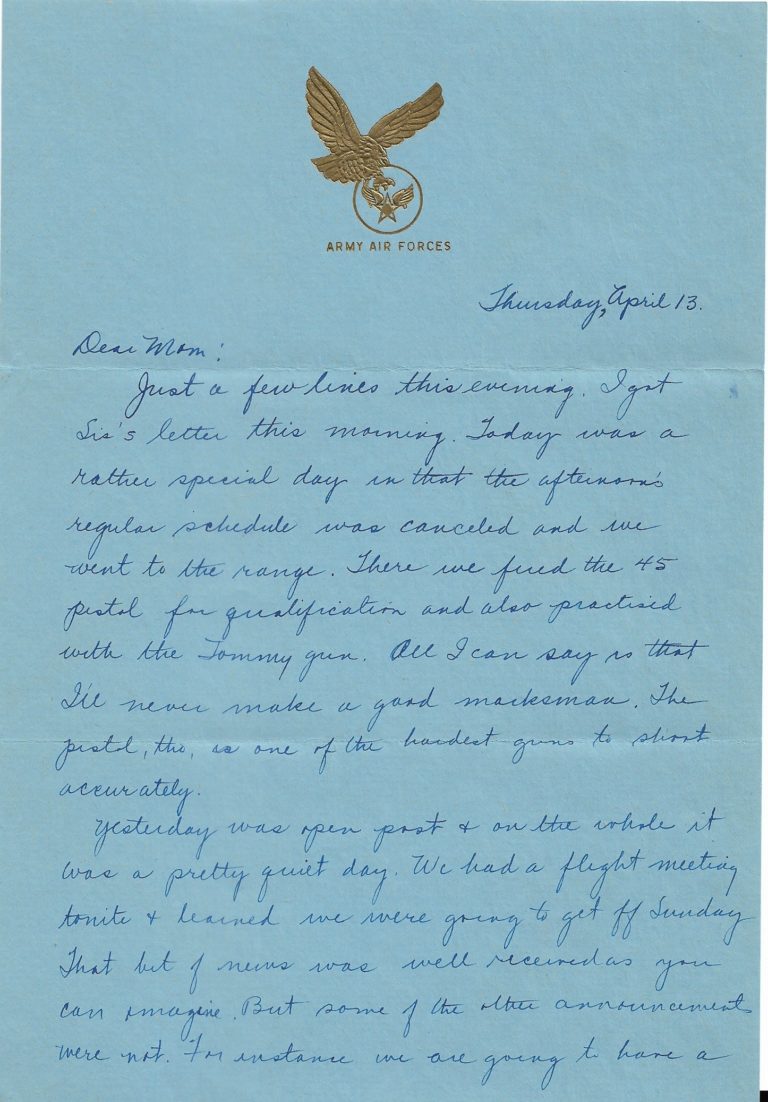 ARMY AIR FORCES
Thursday, April 13.
Dear Mom:
Just a few lines this evening. I got
Sis's letter this morning. Today was a
rather special day in that the afternoon's
regular schedule was canceled and we
went to the range. There we fired the 45
pistol for qualification and also practised
with the Tommy gun. All I can say is that
I'll never make a good marksman. The
pistol, tho, is one of the hardest guns to shoot
accurately.
Yesterday was open post & on the whole it
was a pretty quiet day. We had a flight meeting
tonite & learned we were going to get off Sunday
That bit of news was well received as you
can imagine. But some of the other announcements
were not. For instance we are going to have a